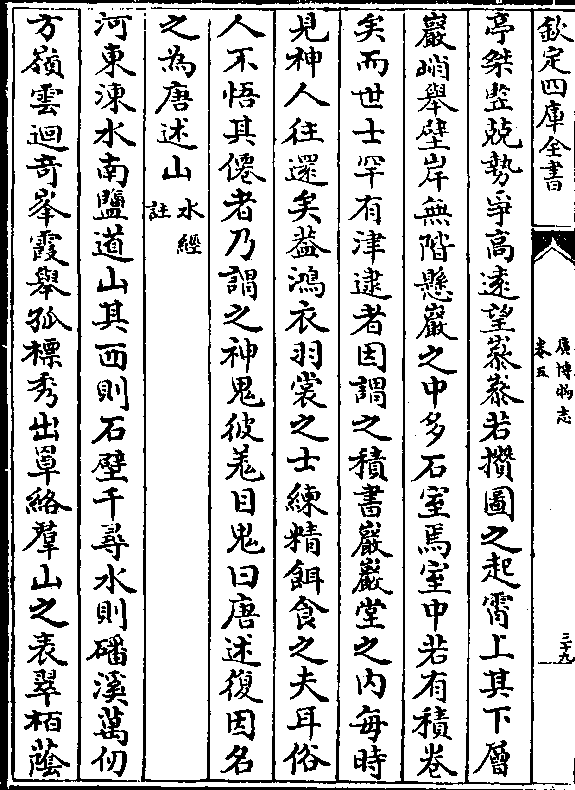 欽定四庫全書
廣博物志
卷五
三十九
亭桀竪競勢爭高遠望嵾嵾若攢圖之起霄上其下層
巖峭舉壁岸無階懸巖之中多石室焉室中若有積卷
矣而世士罕有津逮者因謂之積書巖巖堂之内每時
見神人往還矣葢鴻衣羽裳之士練精餌食之夫耳俗
人不悟其僊者乃謂之神鬼彼羌目鬼曰唐述復因名
之為唐述山水經註
河東涑水南鹽道山其西則石壁千尋水則磻溪萬仞
方嶺雲迴奇峯霞舉孤標秀出罩絡羣山之表翠栢蔭